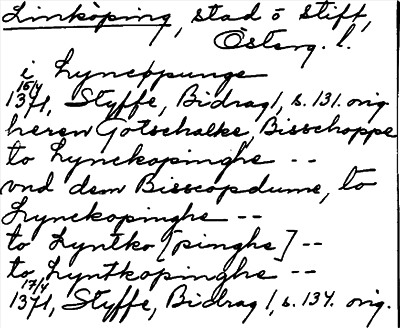 Linköping, stad o stift,
Österg. l.
i Lyncøpunge
15/4
1371, Styffe, Bidrag 1, s. 131. orig.
heren Gotschalke, Bisschoppe
to Lynekopinghe --
vnd dem Bisscopdume, to
Lynekopinghe --
to Lyntko [pinghe] --
to Lyntkopinghe --
17/4
1371, Styffe, Bidrag 1, s. 134. orig.